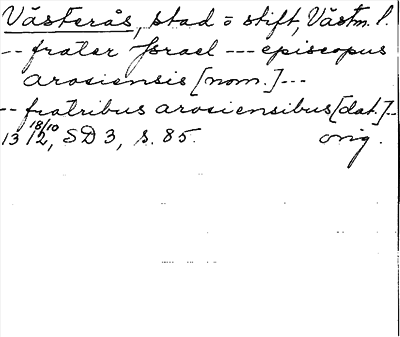 Västerås, stad o stift, Västm. l.
-- frater Israel --- episcopus
arosiensis [nom.] ---
-- fratribus arosiensibus [dat.] --
13 18/10 12, SD 3, s. 85. orig.